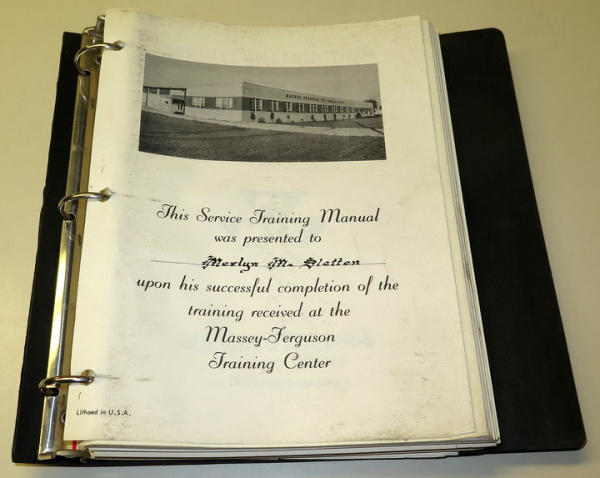 This Service Training Manual
was presented to
Merlyn M. Sletten
upon his successful completion of the
training received at the
Massey-Ferguson
Training Center
Lithoed in U.S.A.